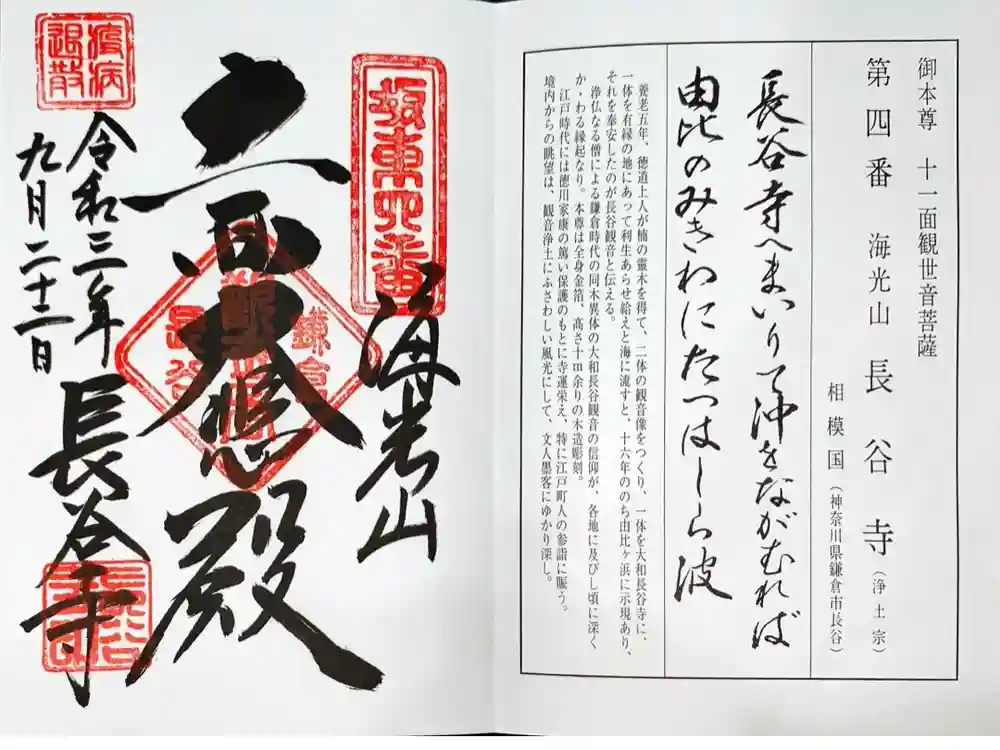 御本尊　十一面観世音菩薩
第四番　海光山　長谷寺（浄土宗）
相模国（神奈川県鎌倉市長谷）
長谷寺へまいりて沖をながむれば
由比のみぎわにたつはしら波
養老五年、徳道上人が楠の霊木を得て、二体の観音像をつくり、一体を大和長谷寺に、
一体を有縁の地にあって利生あらせ給えと海に流すと、十六年ののち由比ヶ浜に示現あり、
それを奉安したのが長谷観音と伝える。
浄仏なる僧による鎌倉時代の同木異体の大和長谷観音の信仰が、各地に及びし頃に深く
か・わる縁起なり。本尊は全身金箔、高さ十m余りの木造彫刻。
江戸時代には徳川家康の篤い保護のもとに寺運栄え、特に江戸町人の参詣に賑う。
境内からの眺望は、観音浄土にふさわしい風光にして、文人墨客にゆかり深し。
坂東四番
海光山
十一面大悲殿
鎌倉
長谷
疫病
退散
令和三年
九月二十二日
長谷寺